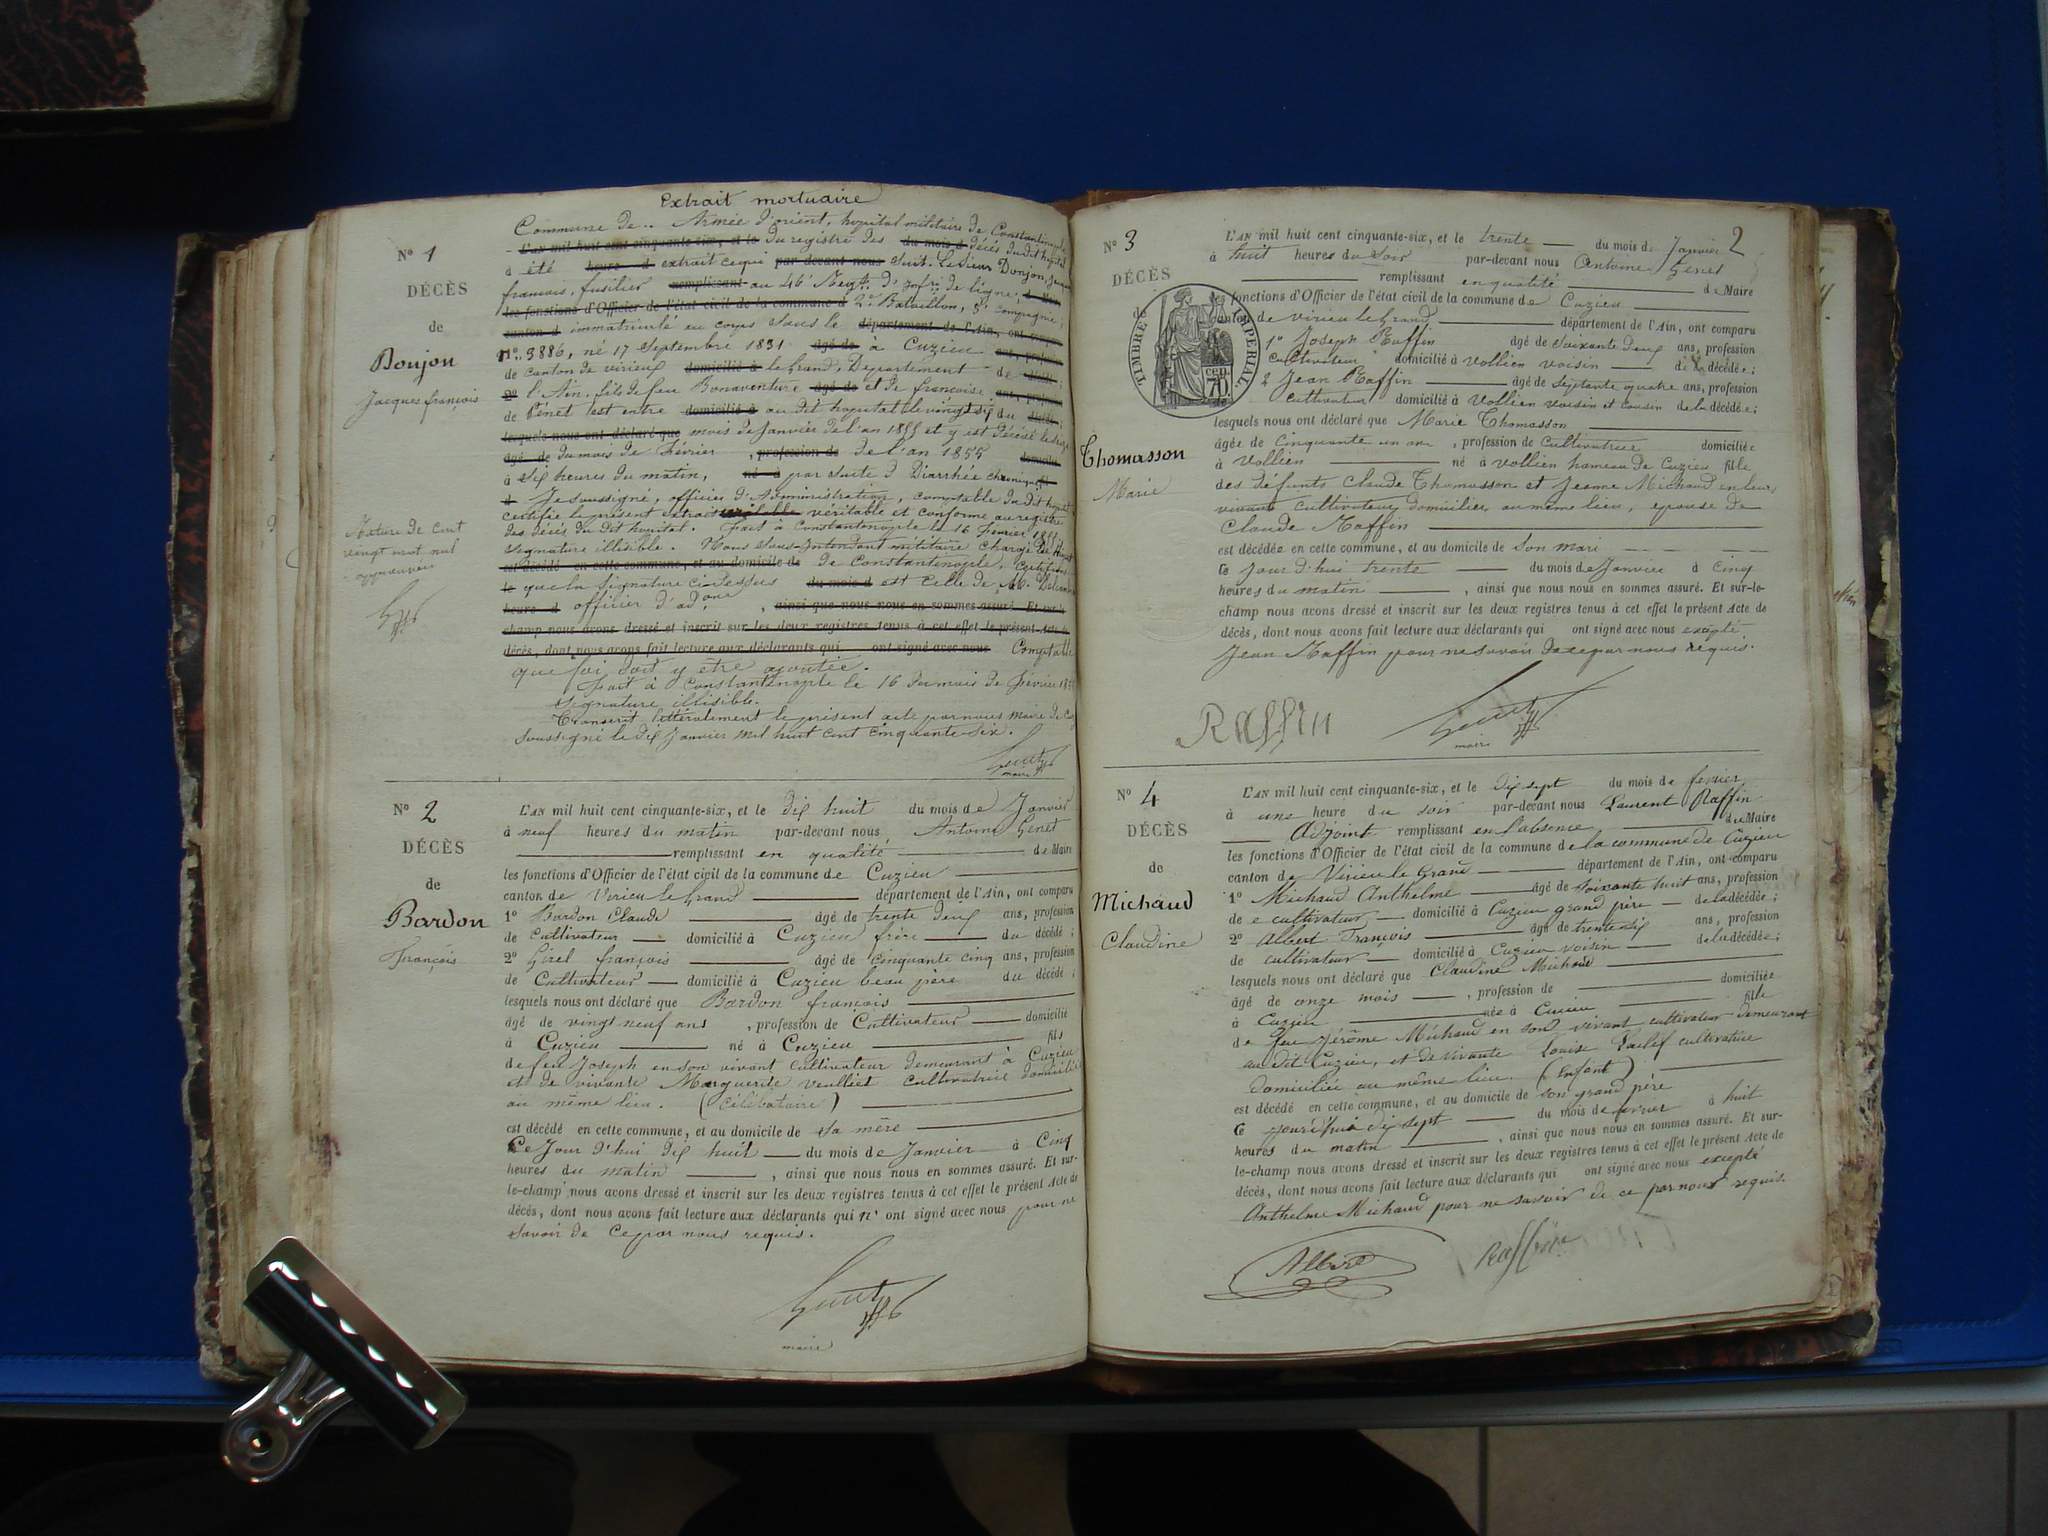 Extrait mortuaire
Commune de .. Armée d'orient, hopital militaire de Constantinople
L'an mil huit cent cinquante-six, et le du registre des du mois d décès du dit hopital
N° 1
a été heure d extrait ce qui par-devant nous suit. Le Sieur Donjon, Jacques
DÉCÈS
françois, fusilier remplissant au 46e Regt. d'infrie de ligne,
les fonctions d'Officier de l'état civil de la commune d 2e Bataillon, 5e compagnie,
de
canton d immatriculé au corps sous le département de l'Ain, ont comparu
Doujon
n°. 3886, né 17 Septembre 1831 âgé de à Cuzieu ans, profession
de canton de virieu domicilié à le Grand, Département de
Jacques françois
2° l'Ain, fils de feu Bonaventure âgé de et de françoise ans, profession
de Penet est entré domicilié à au dit hopital le vingt six du
lesquels nous ont déclaré que mois de Janvier de l'an 1855 et y est décédé le
âgé de du mois de Février , profession de de l'an 1855 domicilié
à six heures du matin, né à par suite d Diarrhée chronique,
Je soussigné, officier d'Administration, comptable du dit hopital
certifie le présent extrait véritable et conforme au registre
Rature de cent
vingt mot nul
approuvés
des décès du dit hopital. Fait à Constantinople le 16 Fevrier 1855
signature illisible. Nous Sous-Intendant militaire chargé du
est décédé en cette commune, et au domicile de de Constantinople, certifions
le que la signature ci-dessus du mois d est celle de M.
heure d officier d'adon, , ainsi que nous nous en sommes assuré. Et sur-le-
champ nous avons dressé et inscrit sur les deux registres tenus à cet effet le présent Acte de
décès, dont nous avons fait lecture aux déclarants qui ont signé avec nous Comptable
que foi doit y être ajoutée.
Fait à Constantinople le 16 du mois de Février
signature illisible.
Transcrit littéralement le présent acte par nous maire de
soussigné le dix Janvier mil huit cent cinquante-six.
Genet
maire
N° 2
DÉCÈS
de
Bardon
François
L'AN mil huit cent cinquante-six, et le dix huit du mois de Janvier
à neuf heures du matin par-devant nous Antoine Genet
remplissant en qualité de Maire
les fonctions d'Officier de l'état civil de la commune de Cuzieu
canton de Virieu le Grand département de l'Ain, ont comparu
1° Bardon Claude âgé de trente deux ans, profession
de Cultivateur domicilié à Cuzieu frère du décédé ;
2° Girel françois âgé de cinquante cinq ans, profession
de Cultivateur domicilié à Cuzieu beau père du décédé ;
lesquels nous ont déclaré que Bardon françois
âgé de vingt neuf ans , profession de Cultivateur domicilié
à Cuzieu né à Cuzieu fils
de feu Joseph en son vivant cultivateur demeurant à Cuzieu
et de vivante Marguerite Veulliet cultivatrice domiciliée
au même lieu. (célibataire)
est décédé en cette commune, et au domicile de sa mère
Ce Jour d'hui dix huit du mois de Janvier à Cinq
heures du matin , ainsi que nous nous en sommes assuré. Et sur-
le-champ nous avons dressé et inscrit sur les deux registres tenus à cet effet le présent Acte de
décès, dont nous avons fait lecture aux déclarants qui n' ont signé avec nous pour ne
savoir de ce par nous requis.
Genet
maire
2
N° 3
DÉCÈS
de
TIMBRE IMPERIAL.
70 CEN.
Thomasson
Marie
L'AN mil huit cent cinquante-six, et le trente du mois de Janvier
à huit heures du soir par-devant nous Antoine Genet
remplissant en qualité de Maire
les fonctions d'Officier de l'état civil de la commune de Cuzieu
canton de virieu le Grand département de l'Ain, ont comparu
1° Joseph Raffin âgé de soixante deux ans, profession
cultivateur domicilié à Vollien voisin de la décédée ;
2 Jean Raffin âgé de septante quatre ans, profession
cultivateur domicilié à Vollien voisin et cousin de la décédée ;
lesquels nous ont déclaré que Marie Thomasson
âgée de Cinquante un ans , profession de Cultivatrice domiciliée
à Vollien né à Vollien hameau de Cuzieu fille
des défunts Claude Thomasson et Jeanne Michaud en leur
vivant cultivateurs domiciliés au même lieu, épouse de
Claude Raffin
est décédée en cette commune, et au domicile de son mari
Ce jour d'hui trente du mois de Janvier à cinq
heures du matin , ainsi que nous nous en sommes assuré. Et sur-le-
champ nous avons dressé et inscrit sur les deux registres tenus à cet effet le présent Acte de
décès, dont nous avons fait lecture aux déclarants qui ont signé avec nous excepté
Jean Raffin pour ne savoir de ce par nous requis.
Raffin
Genet
maire
N° 4
DÉCÈS
de
Michaud
Claudine
L'AN mil huit cent cinquante-six, et le dix sept du mois de fevrier
à une heure du soir par-devant nous Laurent Raffin
Adjoint remplissant en l'absence du Maire
les fonctions d'Officier de l'état civil de la commune de la commune de Cuzieu
canton de Virieu le Grand département de l'Ain, ont comparu
1° Michaud Anthelme âgé de soixante huit ans, profession
de e cultivateur domicilié à Cuzieu grand père de la décédée ;
2° Albert François âgé de trente six ans, profession
de cultivateur domicilié à Cuzieu voisin de la décédée ;
lesquels nous ont déclaré que Claudine Michaud
âgé de onze mois , profession de domiciliée
à Cuzieu née à Cuzieu fille
de feu Jérôme Michaud en son vivant cultivateur demeurant
au dit Cuzieu, et de vivante Louise cultivatrice
domiciliée au même lieu. (Enfant)
est décédé en cette commune, et au domicile de son grand père
Ce jourd'hui dix sept du mois de fevrier à huit
heures du matin , ainsi que nous nous en sommes assuré. Et sur-
le-champ nous avons dressé et inscrit sur les deux registres tenus à cet effet le présent Acte de
décès, dont nous avons fait lecture aux déclarants qui ont signé avec nous excepté
Anthelme Michaud pour ne savoir de ce par nous requis.
Albert
Raffin